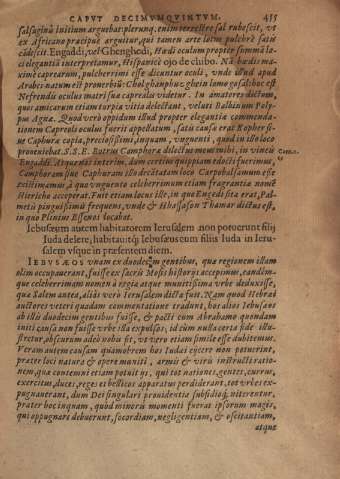 CAPVT DECIMVMQVINTVM. 435
salsuginis initium arguebat: plerunq. enim terrestre sal rubescit, vt
ex Africano præcipuè arguitur, qui tamen arte lotus pulchrè
cādescit. Engaddi, vel Ghenghedi, Hædi oculum propter summā lo
ci elegantiā interpretamur, Hispanicè ojo de chibo. Nā hædis ma
ximè caprearum, pulcherrimi esse dicuntur oculi, vnde illud apud
Arabes natum est prouerbiū:
Nefrendis oculus matri suæ capreolus videtur. In amatores dictum,
quos amicarum etiam turpia vitia delectant, velut Balbinum Poly-
pus Agnæ. Quod verò oppidum illud propter elegantia commenda-
tionem Capreoli oculus fuerit appellatum, satis causæ erat Kopher si-
ue Caphura copia, preciosissimi, inquam, vnguenti, quod in illo loco
proueniebat. S.S.E. Botrus Camphoræ dilectus meus mihi, in vineis
Engaddi. Atque nos interim, dum certius quippiam edocti fuerimus,
Camphoram siue Caphuram illo dictatam loco Carpobalsamum esse
existimamus, à quo vnguento celeberrimum etiam fragrantia nomē
Hiericho acceperat. Fuit etiam locus ille, in quo Engedi sita erat, Pal-
metis pinguissimis frequens, vnde & Hhassason Thamar dictus est,
in quo Plinius Essenos locabat.
Iebusæum autem habitatorem Ierusalem non potuerunt filij
Iuda delere, habitauitq; Iebusæus cum filiis Iuda in Ieru-
salem vsque in præsentem diem.
IEBVSÆOS vnam ex duodecim gentibus, quæ regionem illam
olim occupauerant, fuisse ex sacris Mosis historijs accepimus, eandēm-
que celeberrimam nomen à regia atque munitissima vrbe deduxisse,
quæ Salem antea, aliàs verò Ierusalem dicta fuit. Nam quod Hebræi
auctores veteri quadam commentatione tradunt, hos alios Iebusæos
ab illis duodecim gentibus fuisse, & pacti cum Abrahamo quondam
initi causa non fuisse vrbe illa expulsos; id cùm nulla certa fide illu-
stretur, obscurum adeò nobis fit, vt vero etiam simile esse dubitemus.
Veram autem causam quamobrem hos Iudæi eijcere non potuerint,
præter loci natura & opere muniti, armis & viris instructi ratio-
nem, quæ contemni etiam potuit ijs, qui tot nationes, gentes, currus,
exercitus, duces, reges et bellicos apparatus perdiderant, tot vrbes ex-
pugnauerant, dum Dei singulari prouidentia subsidioq; niterentur,
præter hoc inquam, quod minoris momenti fuerat ipsorum magis,
qui oppugnare debuerunt, socordiam, negligentiam, & oscitantiam,
atque